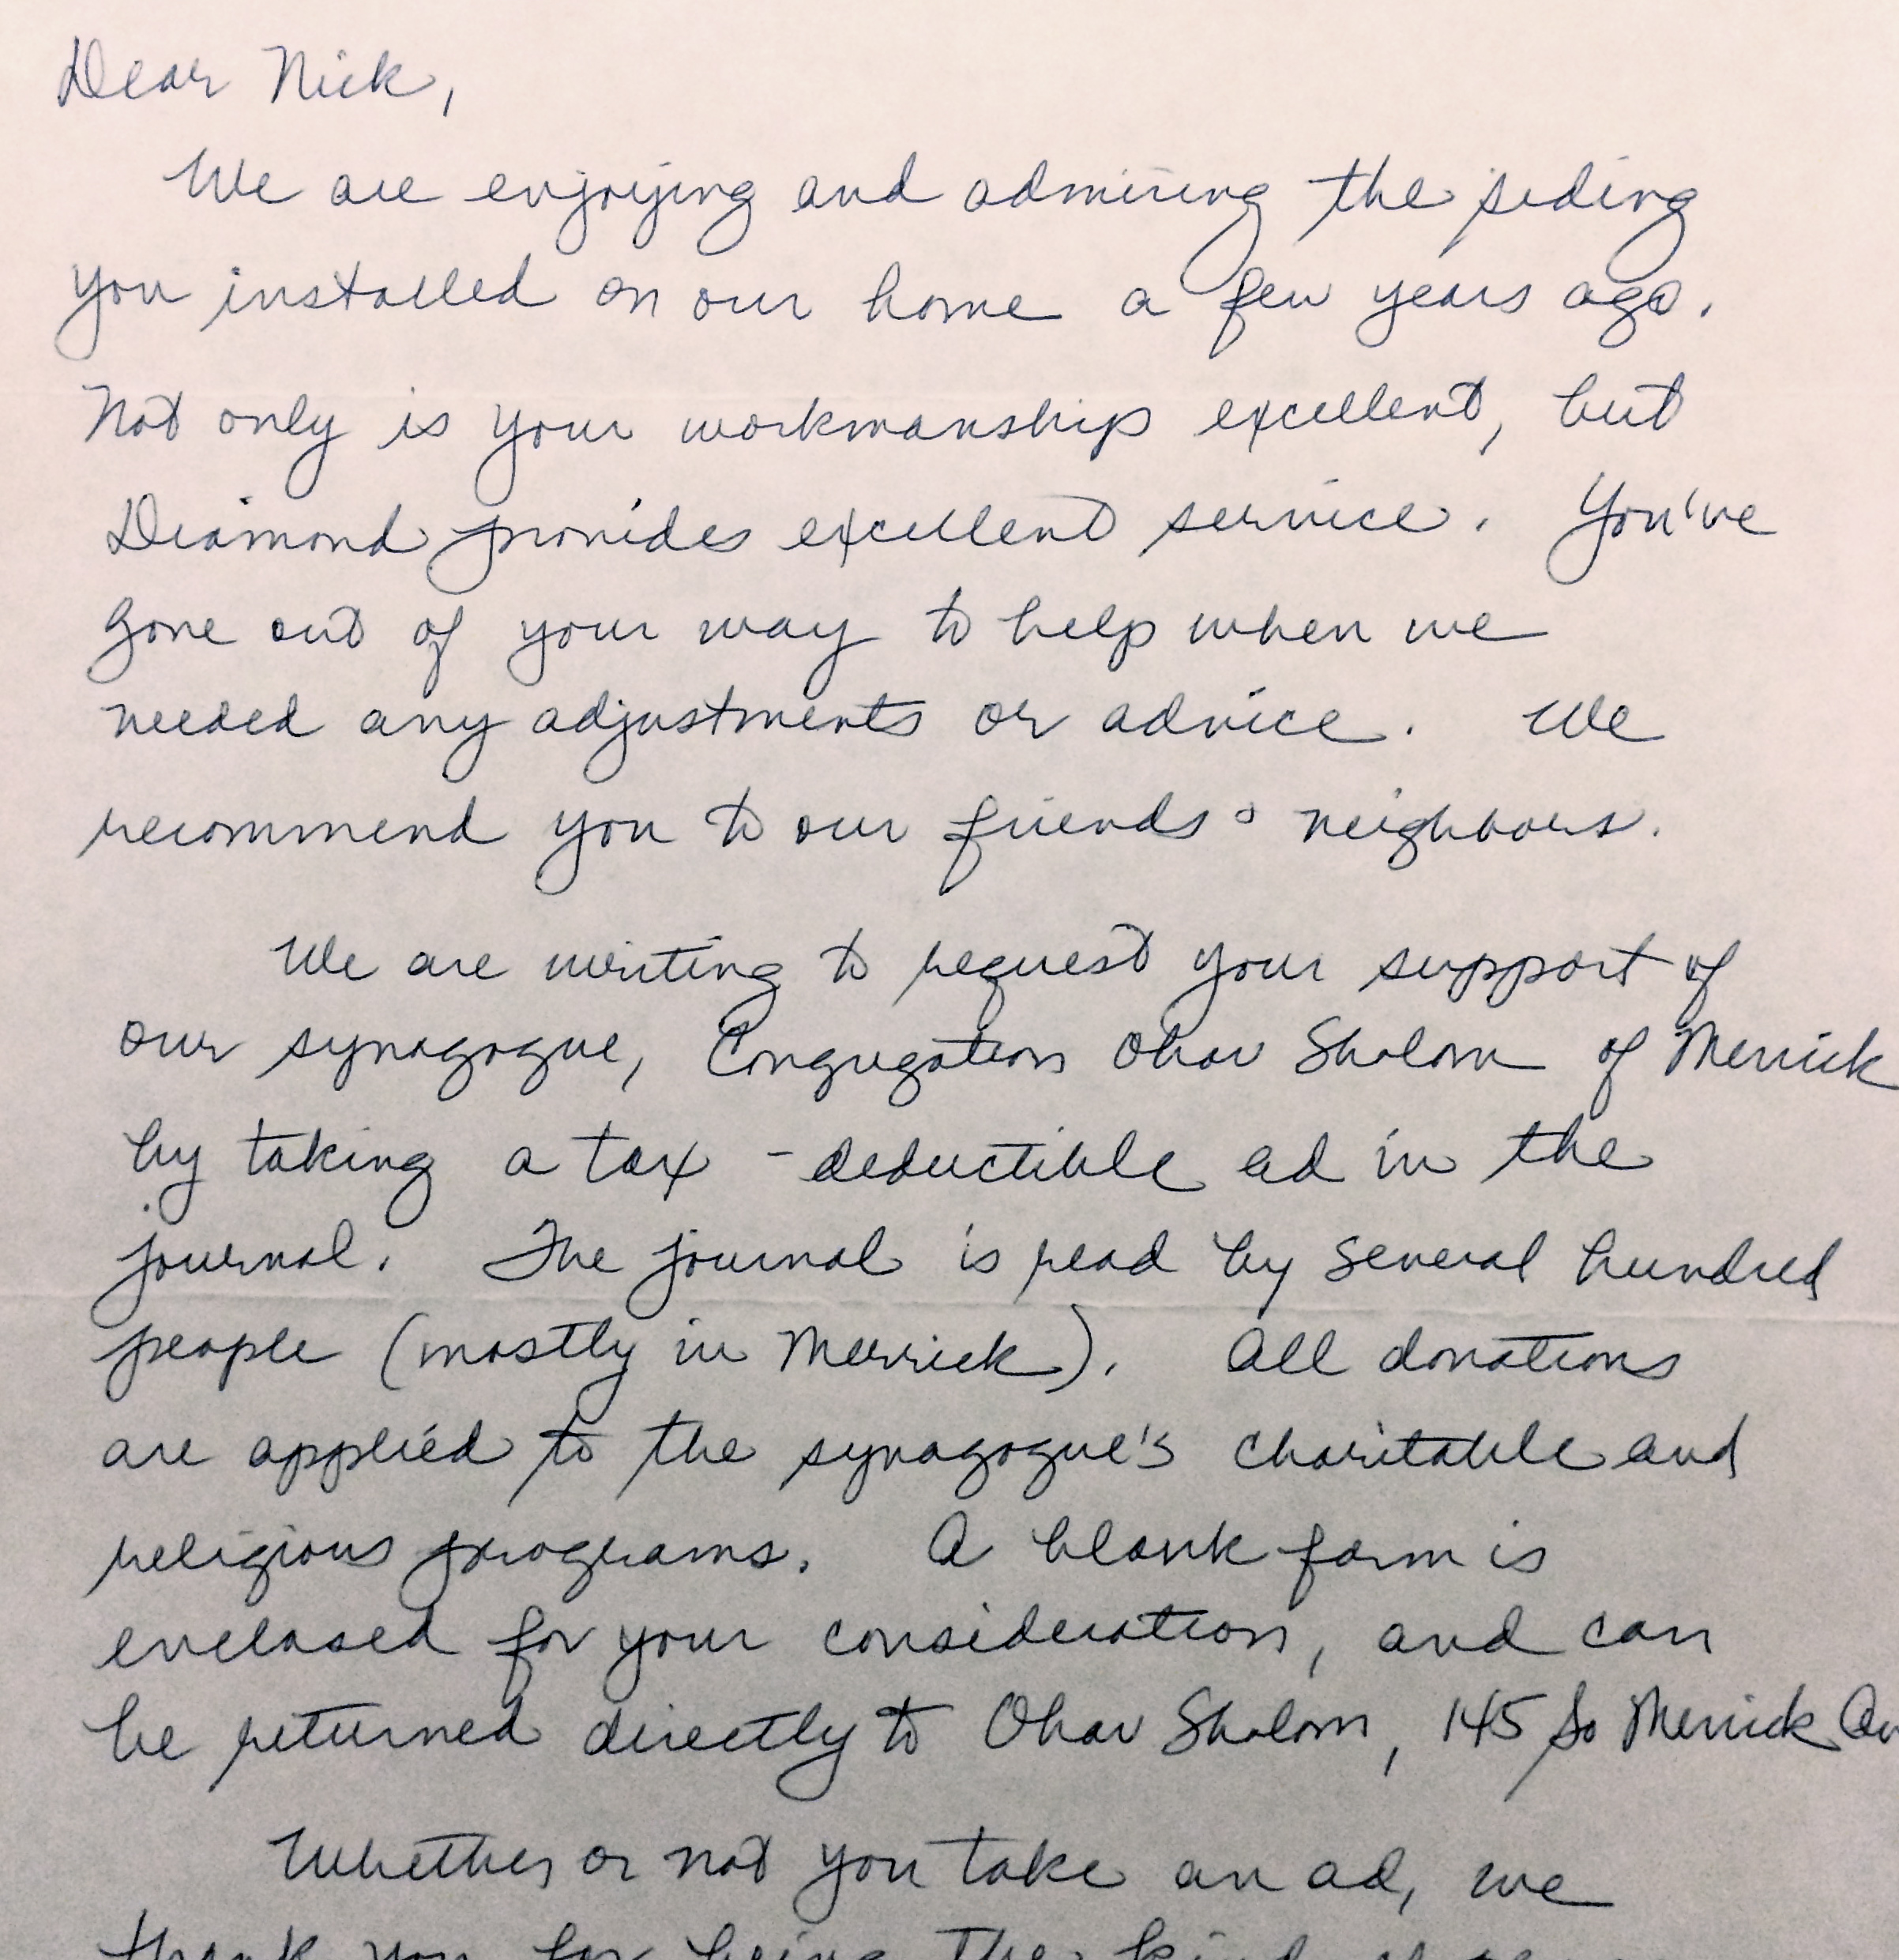 Dear Nick,
We are enjoying and admiring the siding
you installed on our home a few years ago.
Not only is your workmanship excellent, but
Diamond provides excellent service. You've
gone out of your way to help when we
needed any adjustments or advice. We
recommend you to our friends & neighbors.
We are writing to request your support of
our synagogue, Congregation Ohav Sholom of Merrick
by taking a tax-deductible ad in the
journal. The journal is read by several hundred
people (mostly in Merrick). All donations
are applied to the synagogue's charitable and
religious programs. A blank form is
enclosed for your consideration, and can
be returned directly to Ohav Sholom, 145 So Merrick Av
Whether or not you take an ad, we
thank you for being the kind of